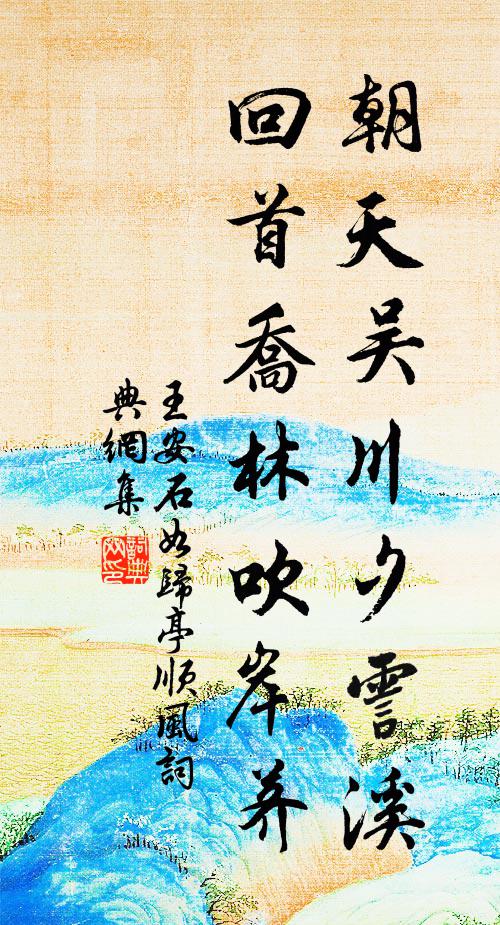 朝天吴川夕霅溪
回首喬林吹岸荠
王安石如歸亭順風詞
典網集
詞典
网印